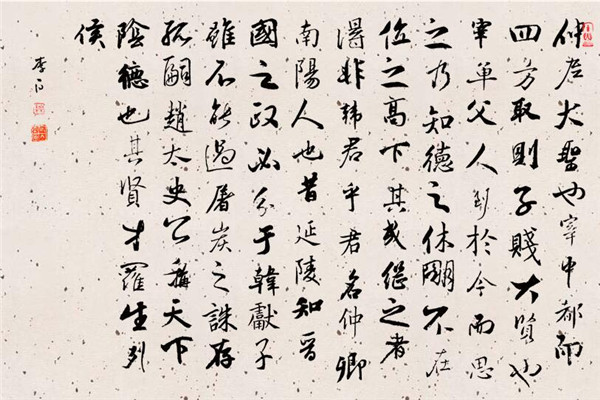 仲尼大聖也宰中都而
四方取則子賤大賢也
宰單父人到於今而思
之乃知德之休明不在
位之高下其或繼之者
得非韓君乎君名仲卿
南陽人也昔延陵知晉
國之政必分于韓獻子
雖不能遏屠岸之誅存
孤嗣趙太史公稱天下
陰德也其賢才羅生列
侯
李